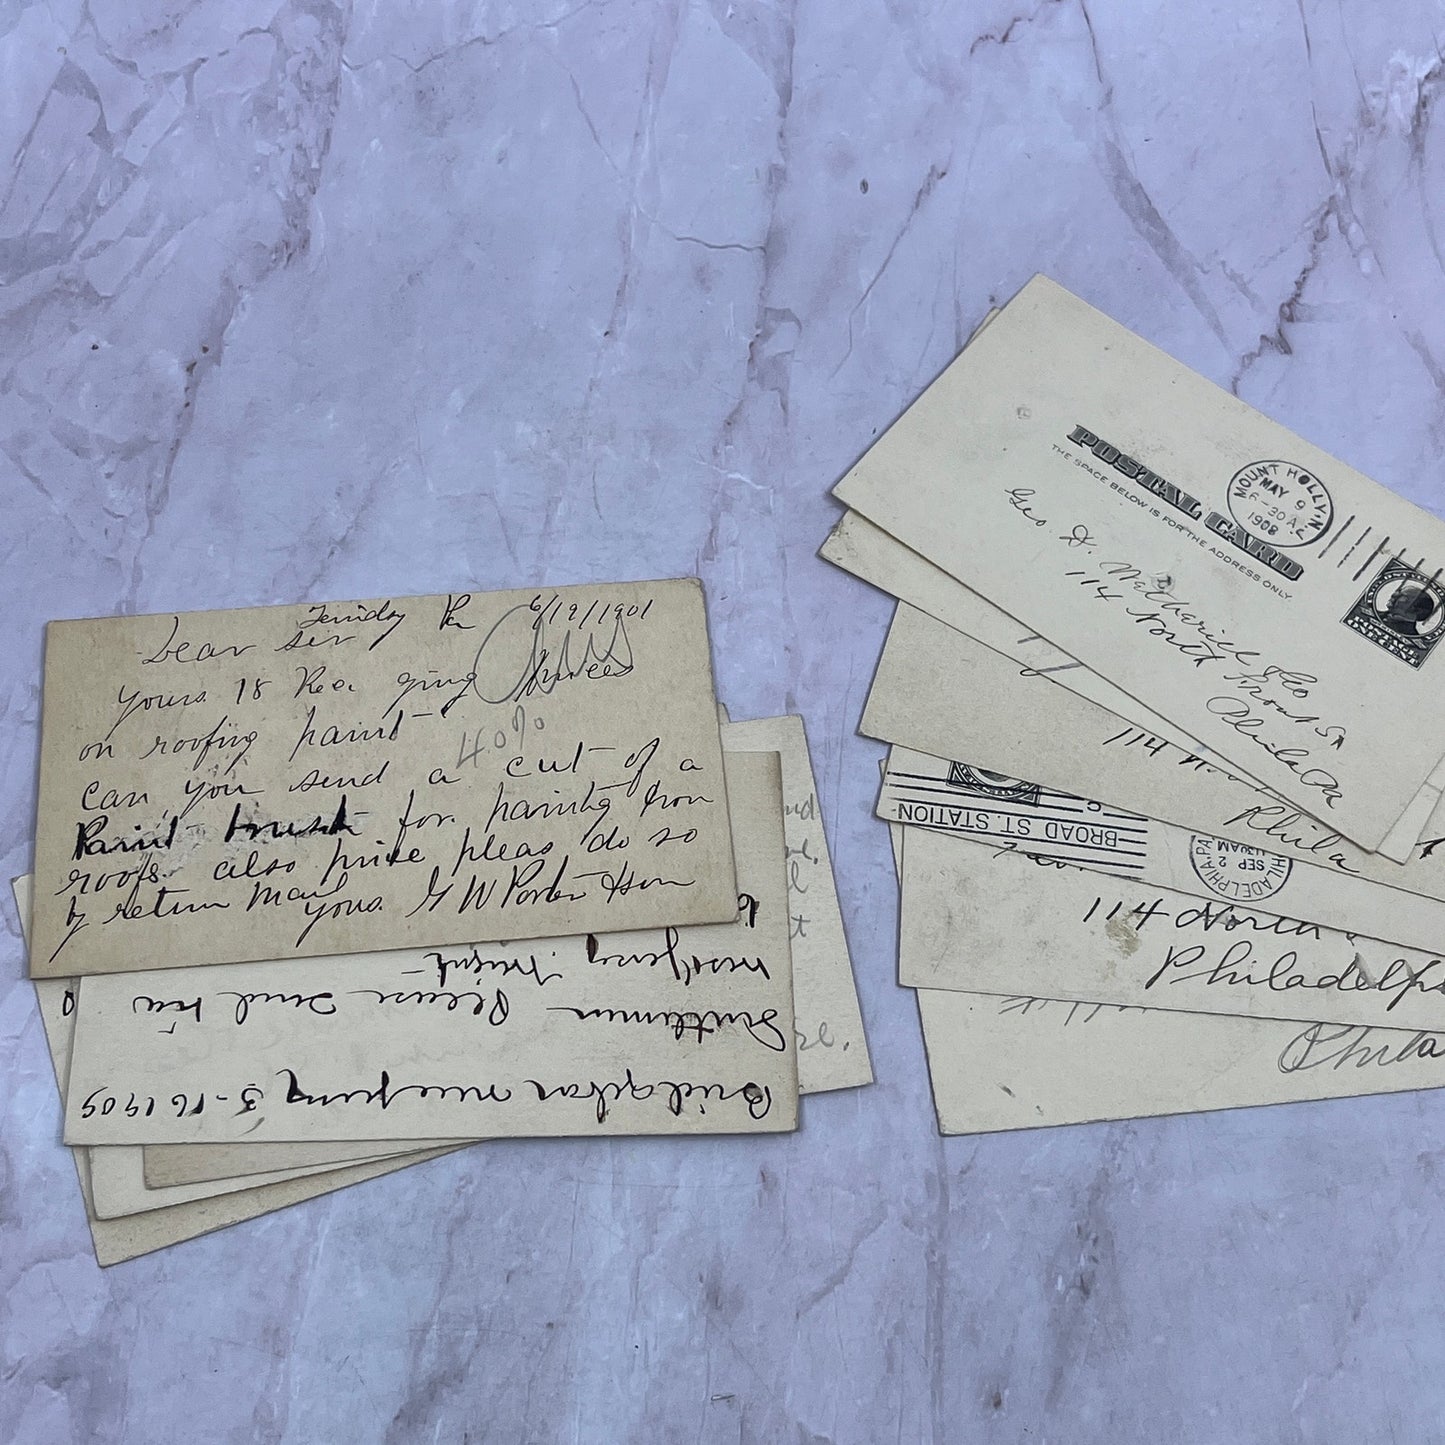 Pa 6/19/1901
Dear Sir
Yours 18 Rec. giving Prices
on roofing paint
40%
can you send a cut of a
Paint brush for painting iron
roofs also price pleas do so
by return Mail
Yours. G W Porter & Son
Bridgeton New Jersey 3-16 1909
Gentlemen Please send via
West Jersey Freight
POSTAL CARD
THE SPACE BELOW IS FOR THE ADDRESS ONLY.
MOUNT HOLLY, N.J.
MAY 9
6-30 A
1908
Geo. D. Wetherill & Co
114 North Front St
Phila Pa
114 N.
Phila
BROAD ST. STATION
PHILADELPHIA, PA.
SEP 2
1130AM
114 North
Philadelp
Phila